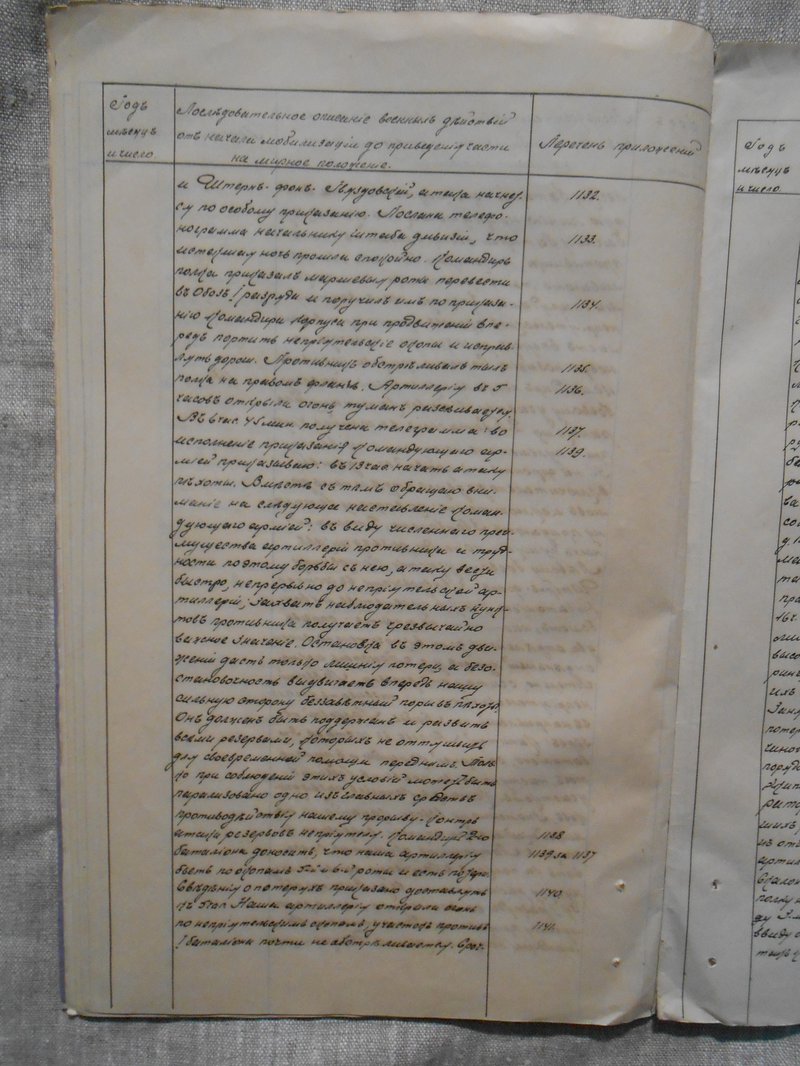 Годъ
мѣсяцъ
и число
Послѣдовательное описаніе военныхъ дѣйствій
отъ начала мобилизаціи до приведенія части
на мирное положеніе.
Перечень приложеній
и Штернъ-фонъ- атака начнет-
ся по особому приказанію. Послана телефо-
1132.
нограмма начальнику штаба дивизіи, что
1133.
истекшая ночь прошла спокойно. Командиръ
полка приказалъ маршевыя роты перевести
въ Обозъ I разряда и поручилъ имъ по приказа-
1134.
нію Командира Корпуса при продвиженіи впе-
редъ портить непріятельскіе окопы и исправ-
лять дороги. Противникъ обстрѣливалъ тылъ
1135.
полка на правомъ флангѣ. Артиллерія въ 5
1136.
часовъ открыла огонь, туманъ разсѣивается.
Въ 6 час. 45 мин. получена телеграмма: во
1137.
исполненіе приказанія Командующаго ар-
1139.
міей приказываю: въ 13 час начать атаку
пѣхоты. Вмѣстѣ съ тѣмъ обращаю вни-
маніе на слѣдующія наставленіе Коман-
дующаго арміей: въ виду численнаго преи-
мущества артиллеріи противника и труд-
ности поэтому борьбы съ нею, атаку вести
быстро, непрерывно до непріятельской ар-
тиллеріи; захватъ наблюдательныхъ пунк-
товъ противника получаетъ чрезвычайно
важное значеніе. Остановка въ этомъ дви-
женіи дастъ только лишнія потери, а безо-
становочность выдвигаетъ впередъ нашу
сильную сторону беззавѣтный порывъ пѣхоты.
Онъ долженъ быть поддержанъ и развитъ
всеми резервами, которыхъ не
для своевременной помощи переднимъ. Толь-
ко при соблюденіи этихъ условій можетъ быть
парализовано одно изъ главныхъ средствъ
противодѣйствія нашему прорыву - контръ
атаки резервовъ непріятеля. Командиръ 2го
1138
баталіона доноситъ, что наша артиллерія
1139 за 1137
бьетъ по окопамъ 5й и 6й роты и есть
Свѣдѣнія о потеряхъ приказано доставлять
1140.
къ Наша артиллерія открыла огонь
по непріятельскимъ окопамъ, участокъ противъ
1141.
I баталіона почти не обстрѣливается. Сроч-
Годъ
мѣсяцъ
и число